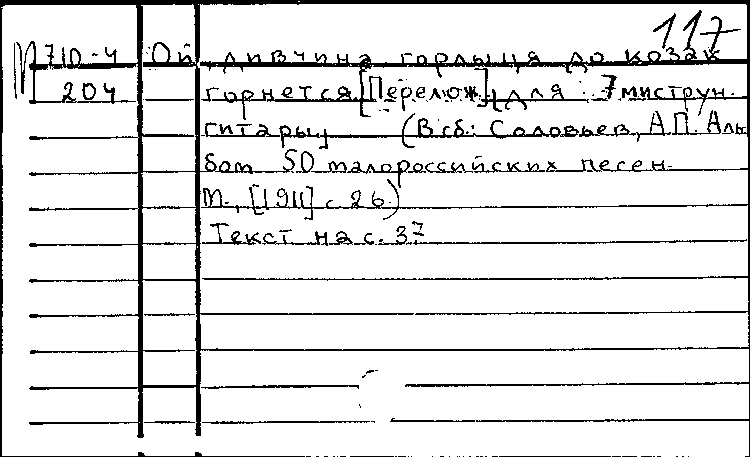 117
М 710-4 Ой, дивчина горлыця до козак
204 горнется [Перелож.] для 7миструн.
гитары (В сб.: Соловьев, А.П. Аль
бом 50 малороссийских песен.
М., [1911] с. 26)
Текст на с. 37